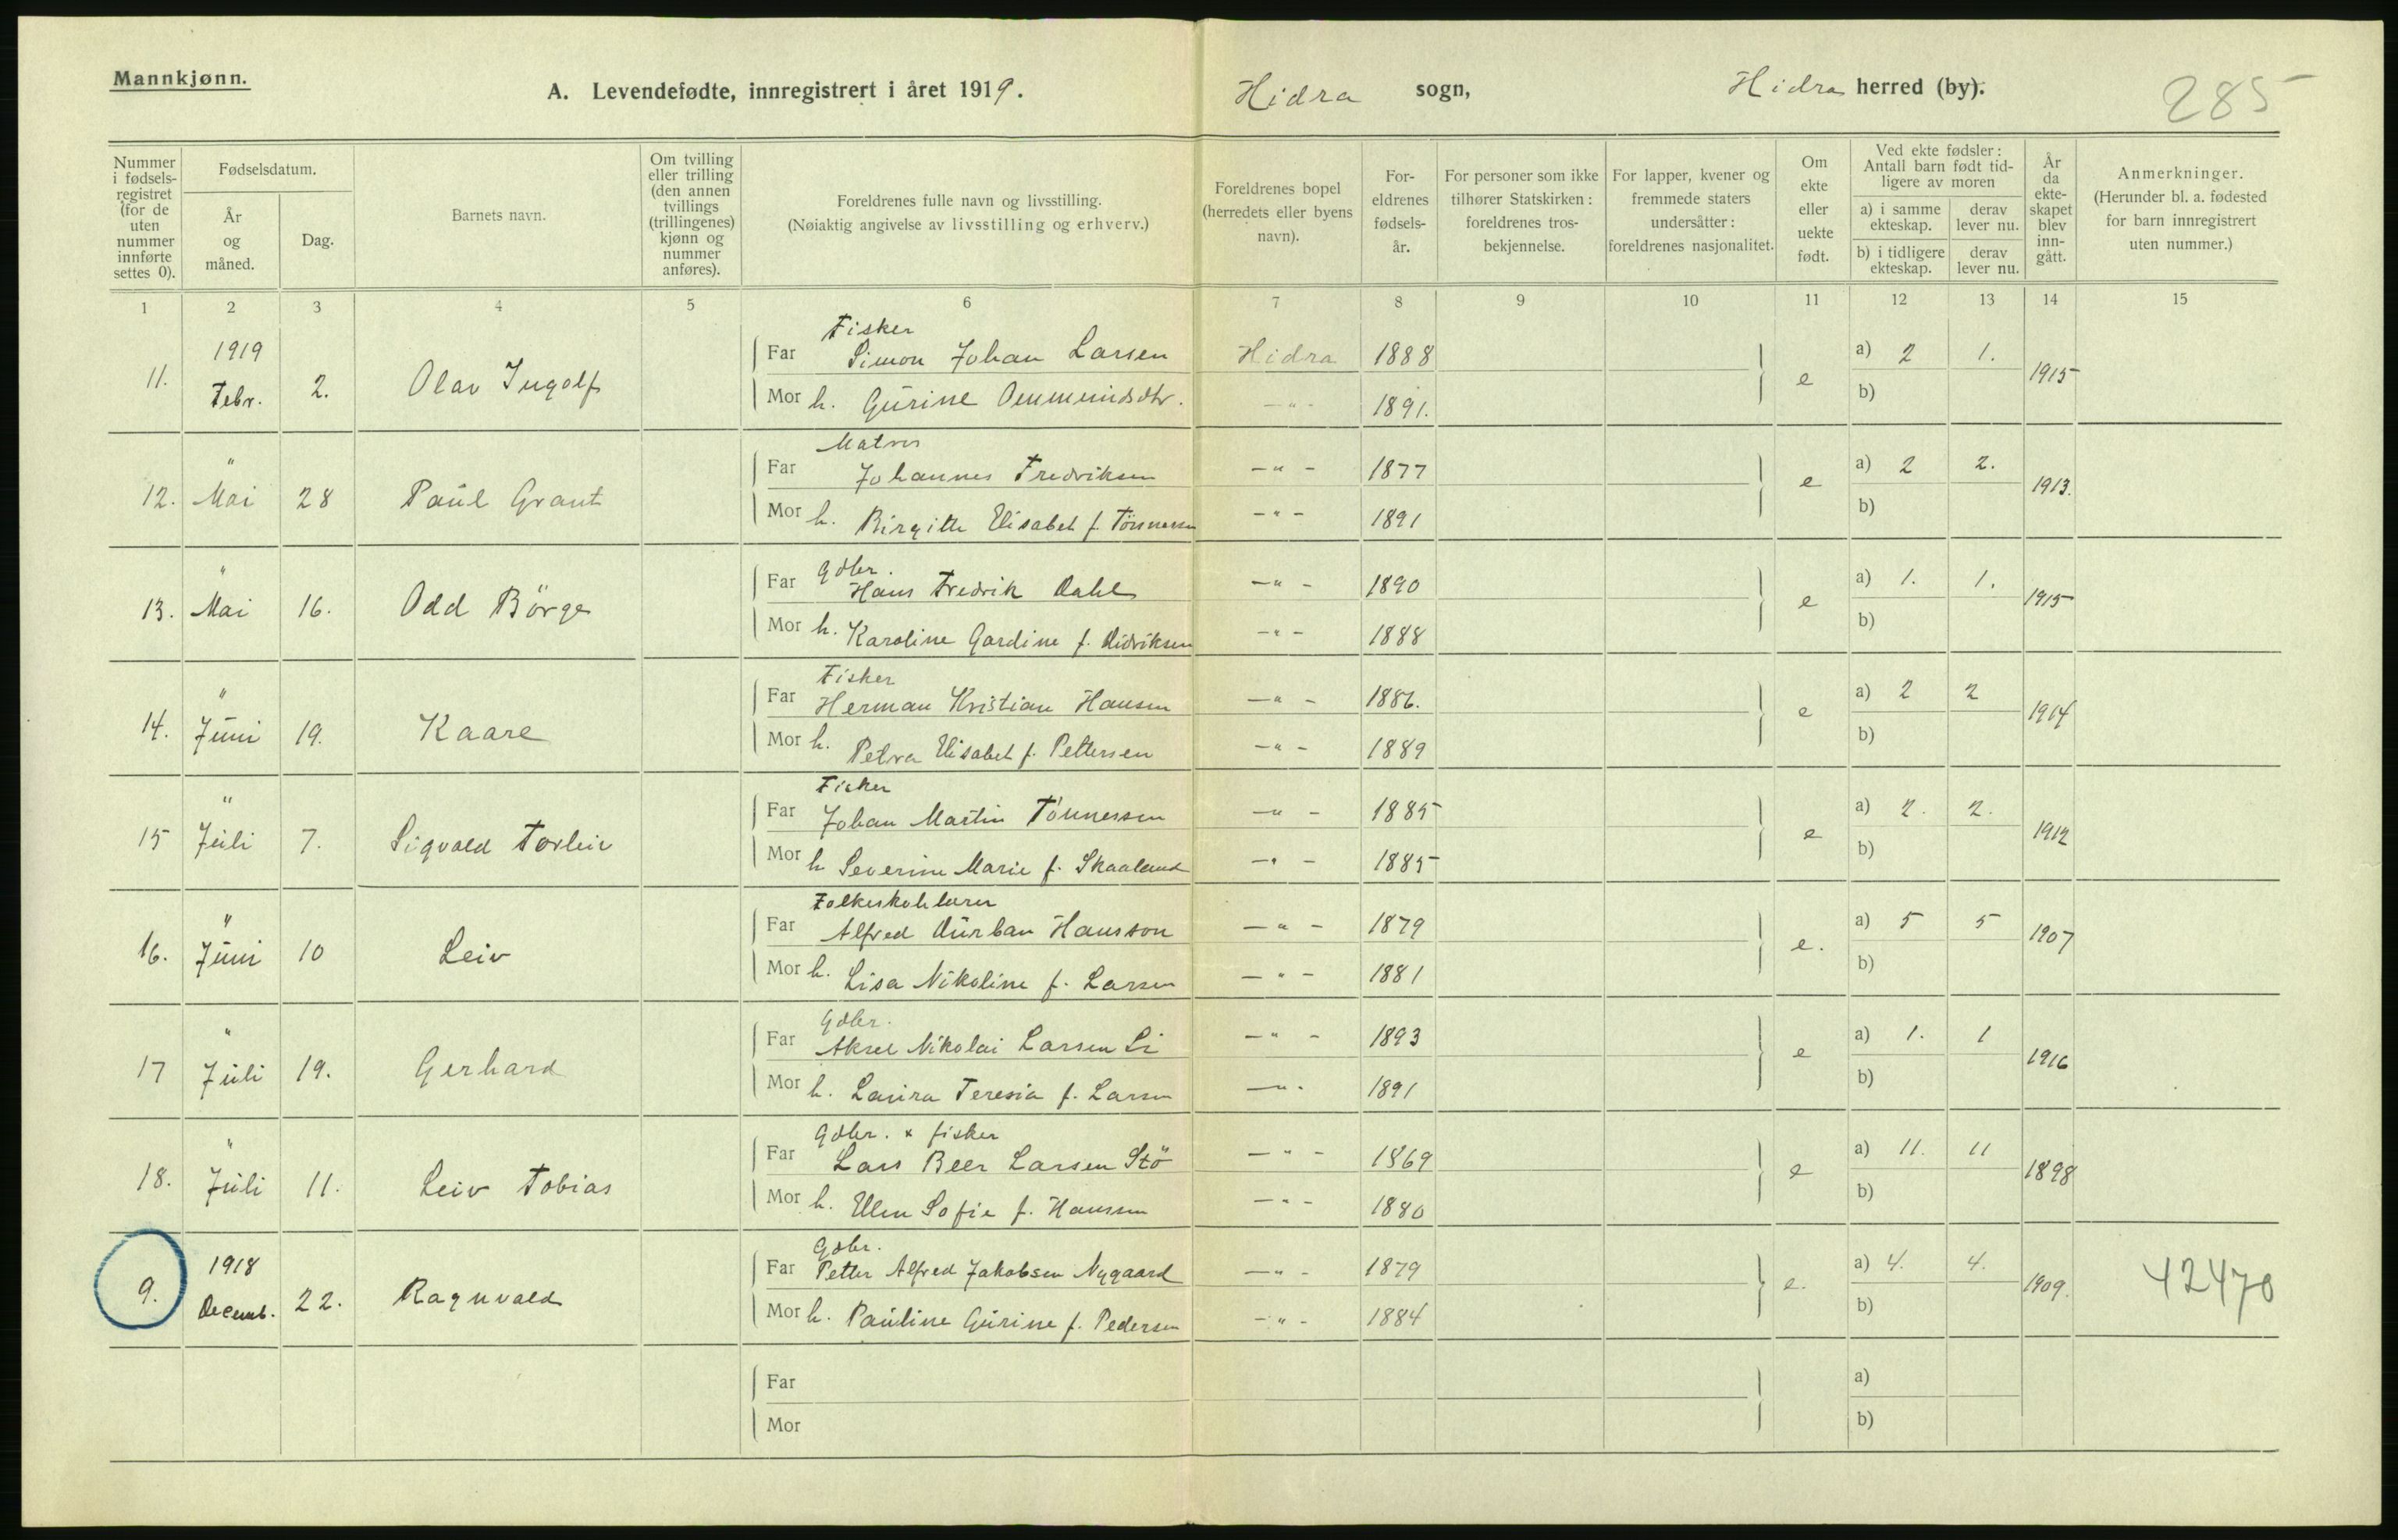 Mannkjønn.
A. Levendefødte, innregistrert i året 1919.
Hidra sogn,
Hidra herred (by).
285
Nummer i fødsels-registret (for de uten nummer innførte settes 0).
Fødselsdatum.
År og måned.
Dag.
Barnets navn.
Om tvilling eller trilling (den annen tvillings (trillingenes) kjønn og nummer anføres).
Foreldrenes fulle navn og livsstilling.
(Nøiaktig angivelse av livsstilling og erhverv.)
Foreldrenes bopel (herredets eller byens navn).
For-eldrenes fødsels-år.
For personer som ikke tilhører Statskirken: foreldrenes tros-bekjennelse.
For lapper, kvener og fremmede staters undersåtter: foreldrenes nasjonalitet.
Om ekte eller uekte født.
Ved ekte fødsler: Antall barn født tid-ligere av moren
a) i samme ekteskap.
derav lever nu.
b) i tidligere ekteskap.
derav lever nu.
År da ekte-skapet blev inn-gått.
Anmerkninger.
(Herunder bl. a. fødested for barn innregistrert uten nummer.)
1 2 3 4 5 6 7 8 9 10 11 12 13 14 15
1919
Fisker
11. Febr. 2. Olav Ingolf Far Simon Johan Larsen Hidra 1888 e a) 2 1. 1915
Mor h. Gurine Ommundsdtr. -"- 1891. b)
Matros
12. " Mai 28 Paul Grant Far Johannes Fredriksen -"- 1877 e a) 2 2. 1913.
Mor h. Birgitte Elisabet f. Tönnesen -"- 1891 b)
Gdbr.
13. " Mai 16. Odd Börge Far Hans Fredrik Dahl -"- 1890 e a) 1. 1. 1915
Mor h. Karoline Gardine f. Didriksen -"- 1888 b)
Fisker
14. " Juni 19. Kaare Far Herman Kristian Hansen -"- 1886. e a) 2 2 1914
Mor h. Petra Elisabet f. Pettersen -"- 1889 b)
Fisker
15 " Juli 7. Sigvald Torleiv Far Johan Martin Tönnessen -"- 1885 e a) 2. 2. 1912
Mor h Severine Marie f. Skaaland -"- 1885 b)
Folkeskolelærer
16. " Juni 10 Leiv Far Alfred Durban Hansson -"- 1879 e. a) 5 5 1907
Mor h. Lisa Nikoline f. Larsen -"- 1881 b)
Gdbr.
17 " Juli 19. Gerhard Far Aksel Nikolai Larsen Li -"- 1893 e a) 1. 1 1916
Mor h. Laura Teresia f. Larsen -"- 1891 b)
Gdbr. & fisker
18. " Juli 11. Leiv Tobias Far Lars Beer Larsen Stö -"- 1869 e a) 11. 11 1898
Mor h. Elen Sofie f. Hanssen -"- 1880 b)
1918
Gdbr.
9. Decemb. 22. Ragnvald Far Petter Alfred Jakobsen Nygaard -"- 1879 e. a) 4. 4. 1909. 42470
Mor h. Pauline Gurine f. Pedersen -"- 1884 b)
Far a)
Mor b)